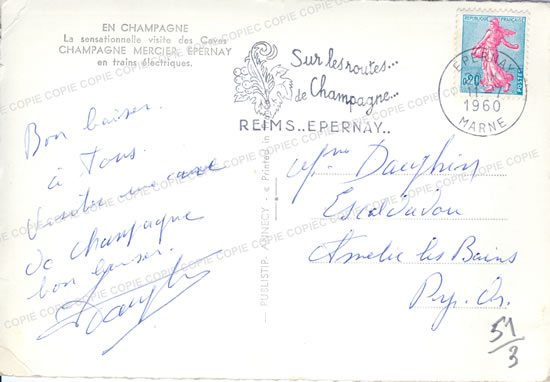 EN CHAMPAGNE
La sensationnelle visite des Caves
CHAMPAGNE MERCIER, EPERNAY
en trains électriques.
Bon baiser.
à Tous.
Visite une cave
de champagne
bon baiser.
Dauphin
PUBLISTIP. ANNECY - Printed in
Sur les routes...
de Champagne...
REIMS..EPERNAY..
REPUBLIQUE FRANÇAISE
0,20
POSTES
EPERNAY
11 - 7
1960
MARNE
Mme Dauphin
Escaldadou
Amelie les Bains
Pyr. Or.
51/3
COPIE COPIE COPIE COPIE